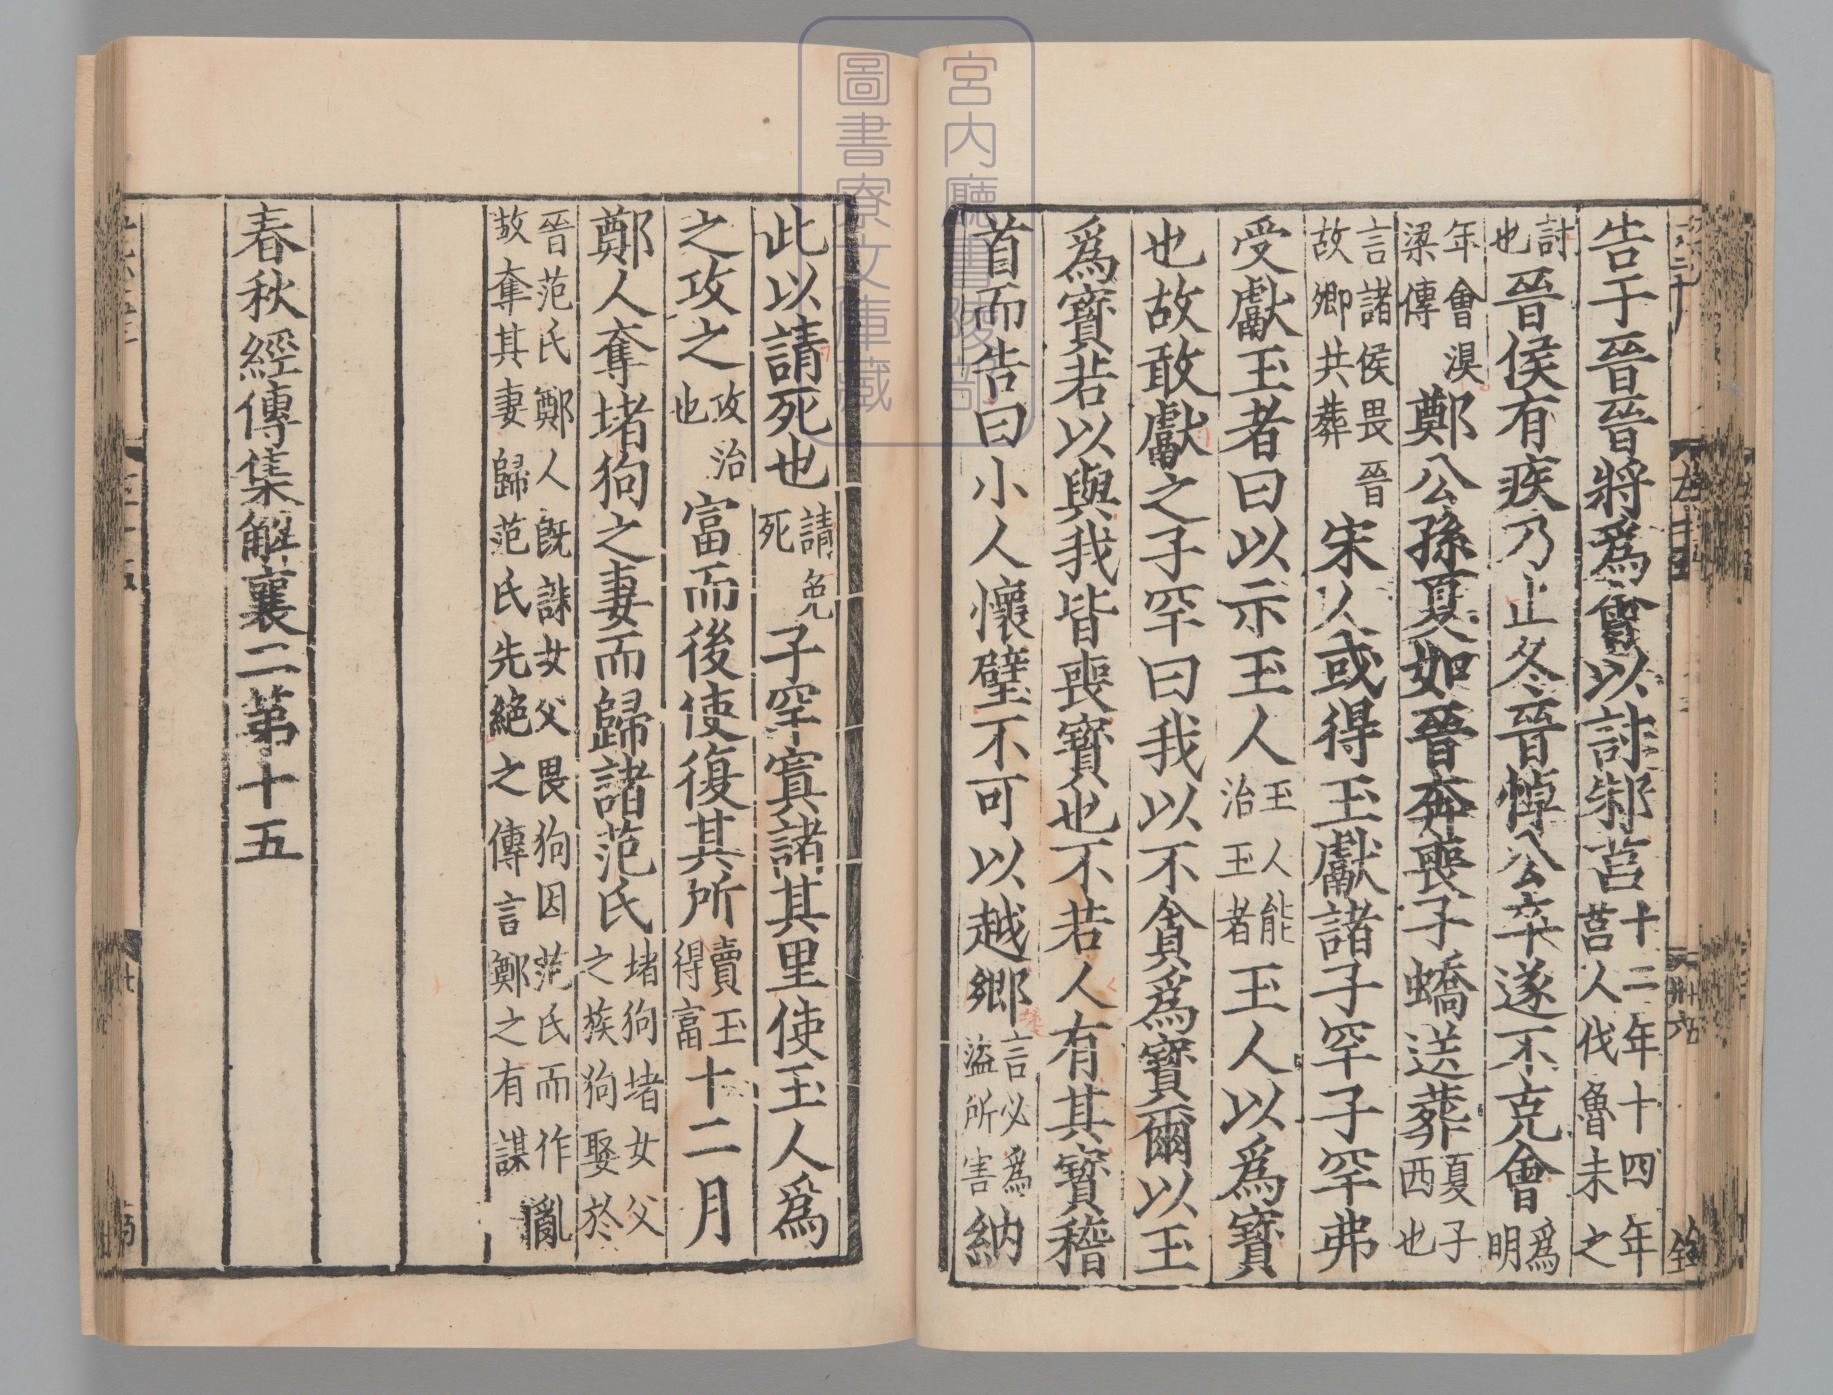 告于晉晉將爲會以討邾莒十二年十四年莒人伐魯未之
討也晉侯有疾乃止冬晉悼公卒遂不克會爲明
年會湨梁傳鄭公孫夏如晉奔喪子蟜送葬夏子西也
言諸侯畏晉故卿共葬宋人或得玉獻諸子罕子罕弗
受獻玉者曰以示玉人玉人能治玉者玉人以爲寶
也故敢獻之子罕曰我以不貪爲寶爾以玉
爲寶若以與我皆喪寶也不若人有其寶稽
首而告曰小人懷璧不可以越鄉言必爲盜所害納
此以請死也請免死子罕寘諸其里使玉人爲
之攻之攻治也富而後使復其所賣玉得富十二月
鄭人奪堵狗之妻而歸諸范氏堵狗堵女父之族狗娶於
晉范氏鄭人旣誅女父畏狗因范氏而作亂
故奪其妻歸范氏先絶之傳言鄭之有謀
春秋經傳集解襄二第十五
宮内廳書陵部
圖書寮文庫藏